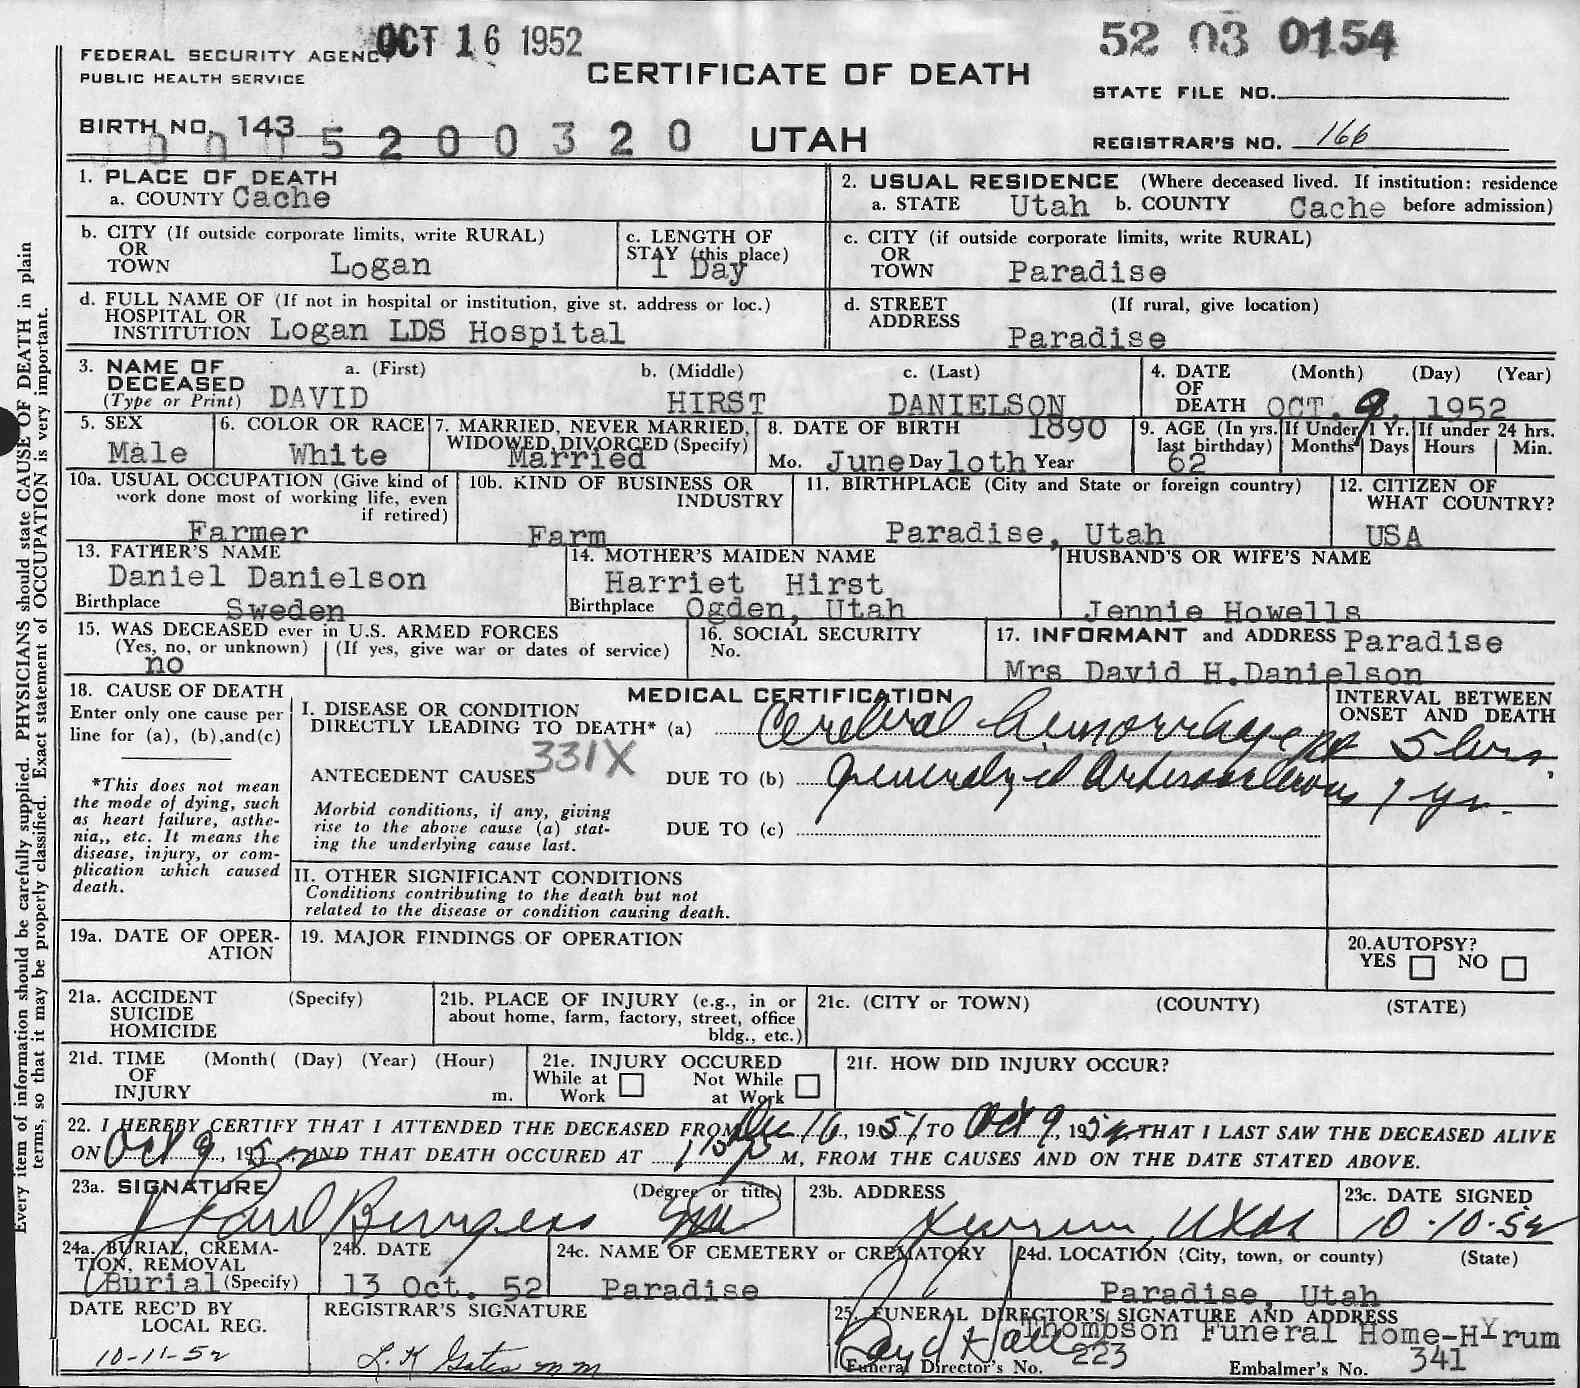 OCT 16 1952
52 03 0154
FEDERAL SECURITY AGENCY
PUBLIC HEALTH SERVICE
CERTIFICATE OF DEATH
STATE FILE NO.
BIRTH NO. 143
5200320
UTAH
REGISTRAR'S NO. 166
1. PLACE OF DEATH
a. COUNTY Cache
2. USUAL RESIDENCE (Where deceased lived. If institution: residence before admission)
a. STATE Utah b. COUNTY Cache
b. CITY (If outside corporate limits, write RURAL)
OR
TOWN Logan
c. LENGTH OF
STAY (this place)
1 Day
c. CITY (if outside corporate limits, write RURAL)
OR
TOWN Paradise
d. FULL NAME OF (If not in hospital or institution, give st. address or loc.)
HOSPITAL OR
INSTITUTION Logan LDS Hospital
d. STREET (If rural, give location)
ADDRESS
Paradise
3. NAME OF a. (First) b. (Middle) c. (Last)
DECEASED
(Type or Print) DAVID HIRST DANIELSON
4. DATE (Month) (Day) (Year)
OF
DEATH OCT. 9, 1952
5. SEX
Male
6. COLOR OR RACE
White
7. MARRIED, NEVER MARRIED,
WIDOWED, DIVORCED (Specify)
Married
8. DATE OF BIRTH 1890
Mo. June Day 10th Year
9. AGE (In yrs.
last birthday)
62
If Under 1 Yr.
Months Days
If under 24 hrs.
Hours Min.
10a. USUAL OCCUPATION (Give kind of
work done most of working life, even
if retired)
Farmer
10b. KIND OF BUSINESS OR
INDUSTRY
Farm
11. BIRTHPLACE (City and State or foreign country)
Paradise, Utah
12. CITIZEN OF
WHAT COUNTRY?
USA
13. FATHER'S NAME
Daniel Danielson
Birthplace Sweden
14. MOTHER'S MAIDEN NAME
Harriet Hirst
Birthplace Ogden, Utah
HUSBAND'S OR WIFE'S NAME
Jennie Howells
15. WAS DECEASED ever in U.S. ARMED FORCES
(Yes, no, or unknown) (If yes, give war or dates of service)
no
16. SOCIAL SECURITY
No.
17. INFORMANT and ADDRESS Paradise
Mrs David H.Danielson
18. CAUSE OF DEATH
Enter only one cause per
line for (a), (b),and(c)
*This does not mean
the mode of dying, such
as heart failure, asthe-
nia,, etc. It means the
disease, injury, or com-
plication which caused
death.
MEDICAL CERTIFICATION
I. DISEASE OR CONDITION
DIRECTLY LEADING TO DEATH* (a) Cerebral hemorrhage
331X
ANTECEDENT CAUSES DUE TO (b) generalized arteriosclerosis
Morbid conditions, if any, giving
rise to the above cause (a) stat-
ing the underlying cause last.
DUE TO (c)
INTERVAL BETWEEN
ONSET AND DEATH
5 hrs.
1 yr.
II. OTHER SIGNIFICANT CONDITIONS
Conditions contributing to the death but not
related to the disease or condition causing death.
19a. DATE OF OPER-
ATION
19. MAJOR FINDINGS OF OPERATION
20.AUTOPSY?
YES NO
21a. ACCIDENT (Specify)
SUICIDE
HOMICIDE
21b. PLACE OF INJURY (e.g., in or
about home, farm, factory, street, office
bldg., etc.)
21c. (CITY or TOWN) (COUNTY) (STATE)
21d. TIME (Month( (Day) (Year) (Hour)
OF
INJURY m.
21e. INJURY OCCURED
While at Work Not While at Work
21f. HOW DID INJURY OCCUR?
22. I HEREBY CERTIFY THAT I ATTENDED THE DECEASED FROM Dec 16, 1951 TO Oct 9, 1952 THAT I LAST SAW THE DECEASED ALIVE
ON Oct 9, 1952 AND THAT DEATH OCCURED AT M, FROM THE CAUSES AND ON THE DATE STATED ABOVE.
23a. SIGNATURE (Degree or title)
Paul Burgess MD
23b. ADDRESS
Hyrum, Utah
23c. DATE SIGNED
10-10-52
24a. BURIAL, CREMA-
TION, REMOVAL
Burial (Specify)
24b. DATE
13 Oct. 52
24c. NAME OF CEMETERY or CREMATORY
Paradise
24d. LOCATION (City, town, or county) (State)
Paradise, Utah
DATE REC'D BY
LOCAL REG.
10-11-52
REGISTRAR'S SIGNATURE
25. FUNERAL DIRECTOR'S SIGNATURE AND ADDRESS
Thompson Funeral Home-Hyrum
Funeral Director's No. 223 Embalmer's No. 341
Every item of information should be carefully supplied. PHYSICIANS should state CAUSE OF DEATH in plain
terms, so that it may be properly classified. Exact statement of OCCUPATION is very important.